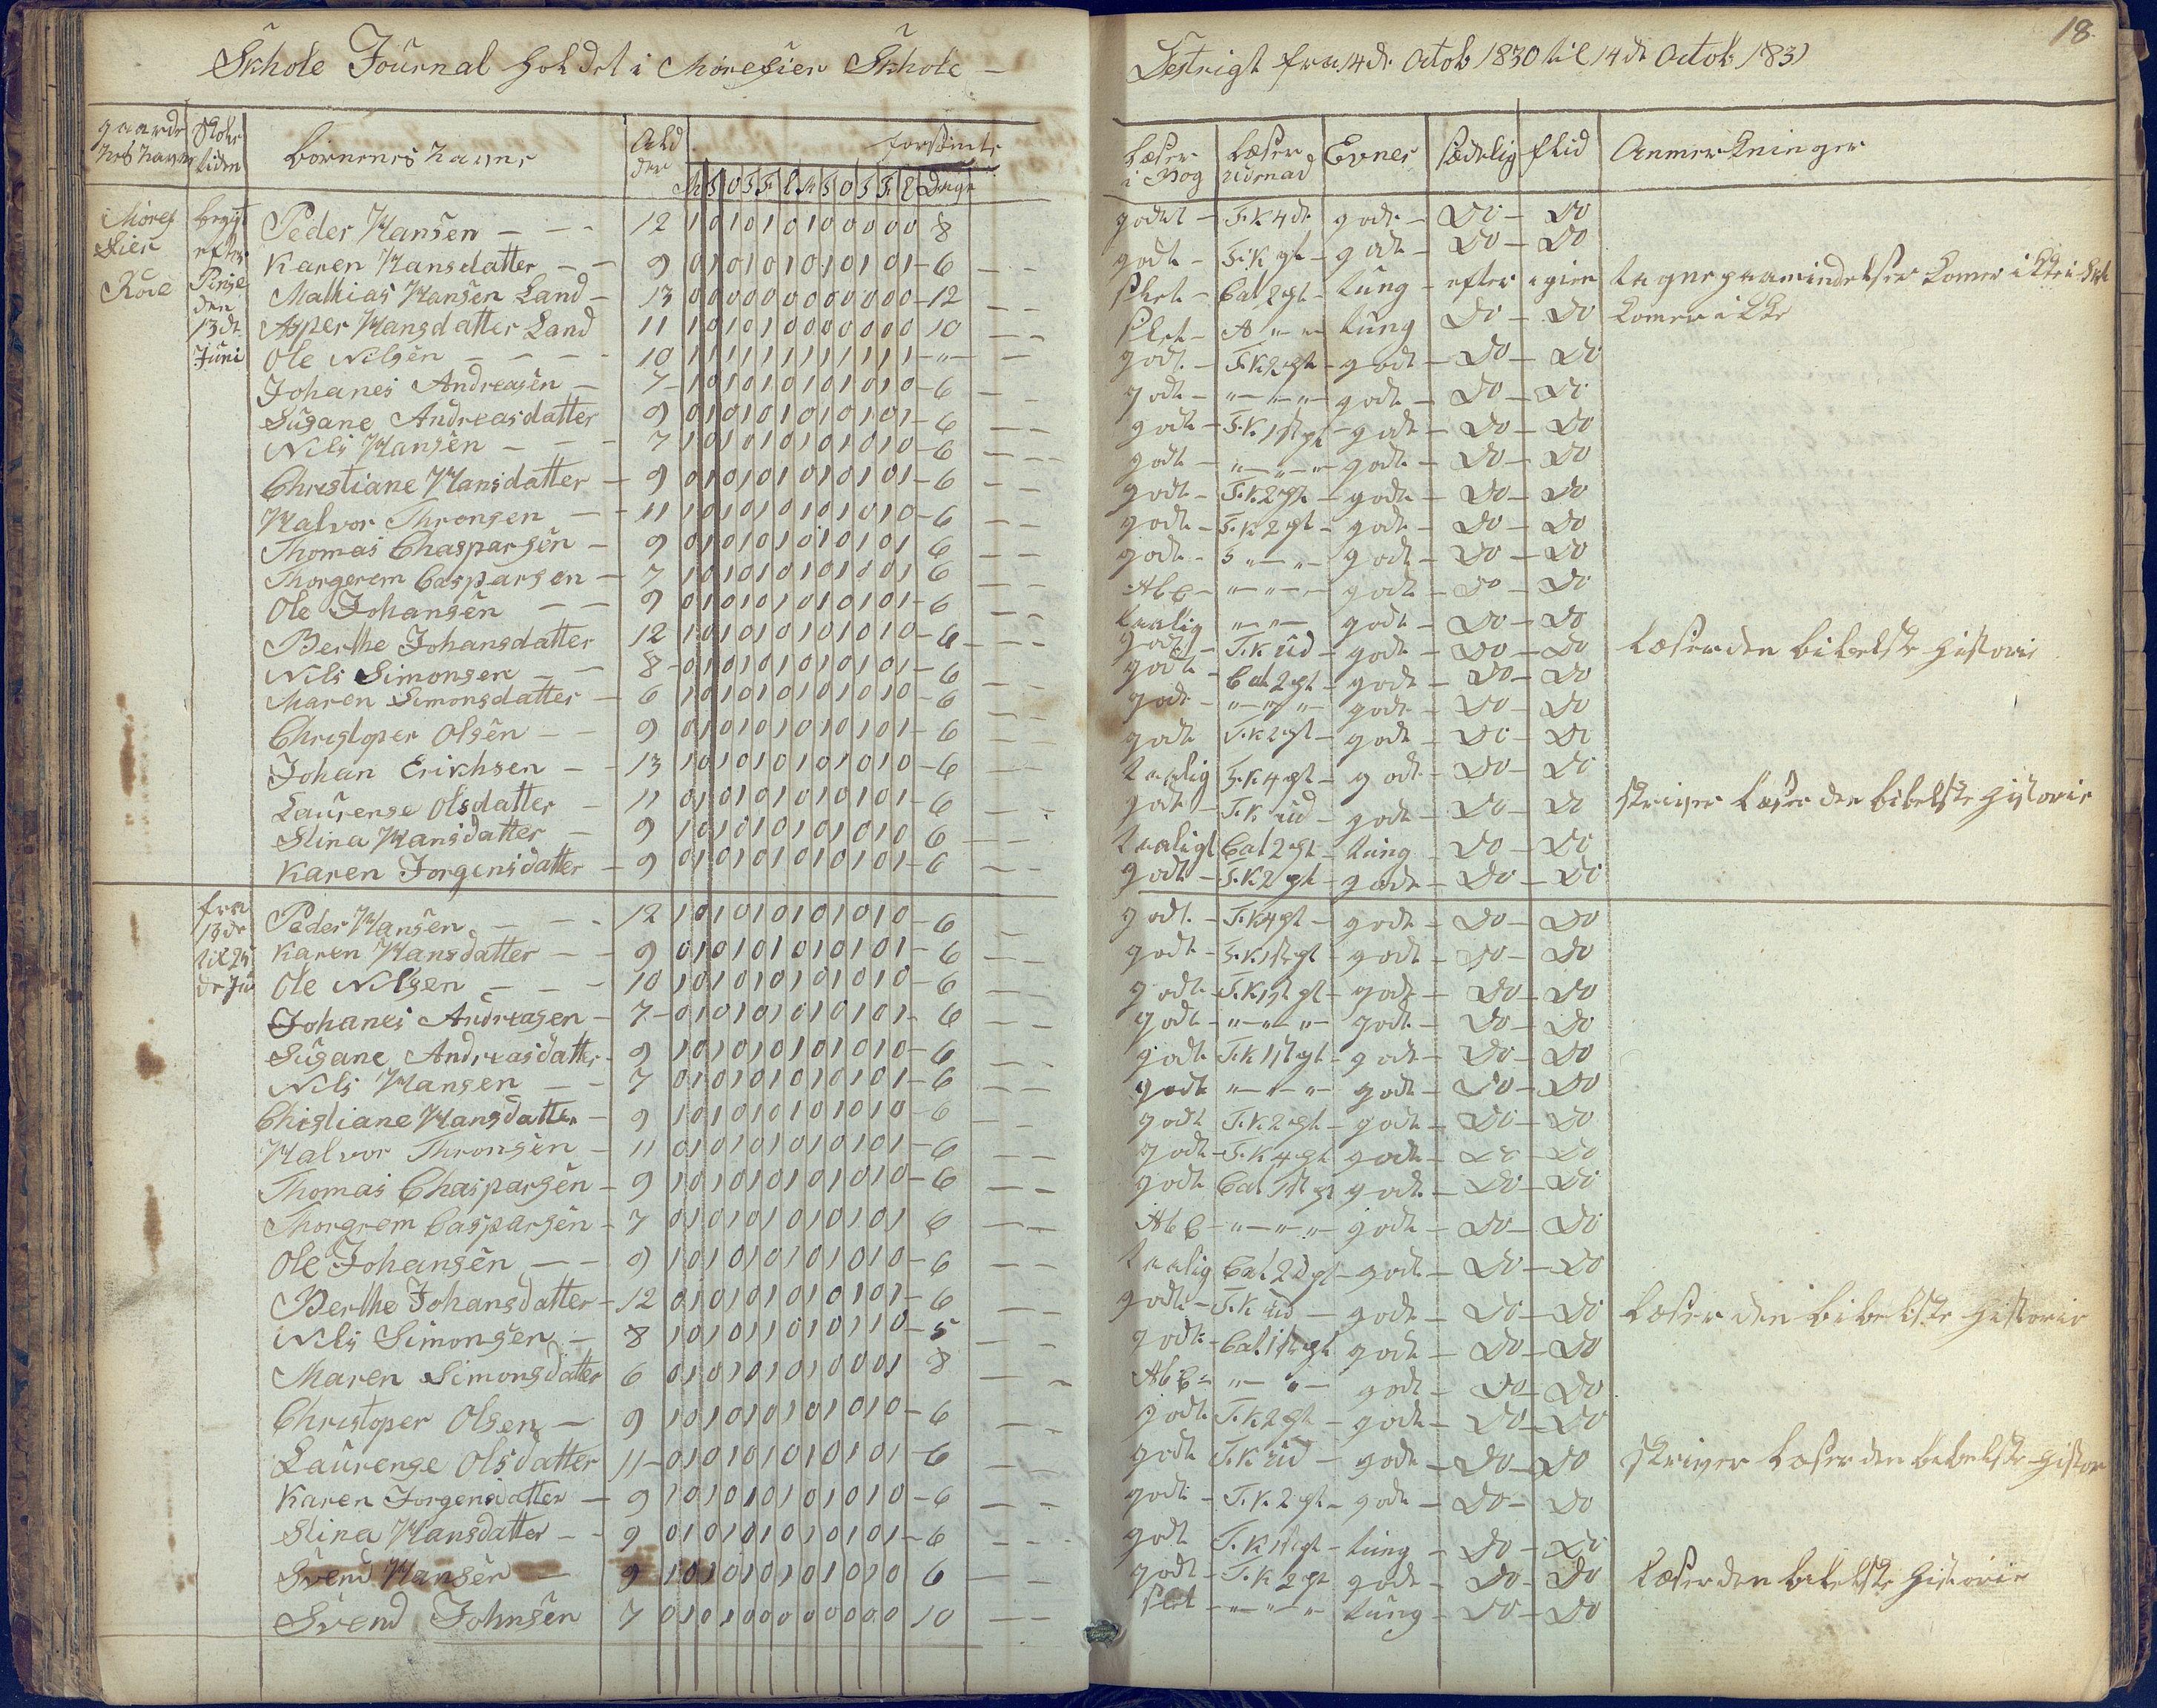 Skhole Journal holdet i Morefier Skhole —
Destrigt fra 14de Octob 1830 til 14de Octob 1831
18
gaarde nes navn Skole tiden börnenes navne Ald der forsömte Dage
M T O T F L M T O T F L
Læser i Bog Læser udenad Evner sædelig flid Anmerkninger
Moref fier begÿt Peder Hansen — 12 1 0 1 0 1 0 1 0 0 0 0 0 8 godt — T.K 4de godt — Do — Do
efter Karen Hansdatter — 9 0 1 0 1 0 1 0 1 0 1 0 1 — 6 godt — T.K gt — godt — Do — Do
Roie Pinse Mathias Hansen Land — 13 0 0 0 0 0 0 0 0 0 0 0 0 — 12 slet — Cat 2 gt — tung — efter igien tagne paamindelser komer ikke i Skl
den 13de Asper Hansdatter Land 11 1 0 1 0 1 0 0 0 0 0 0 0 10 slet — A " " tung Do — Do komer ikke
Juni Ole Nilsen — 10 1 1 1 1 1 1 1 1 1 1 1 1 — " — godt — T.K 2 gt — godt — Do — Do
Johanes Andreasen — 7 — 1 0 1 0 1 0 1 0 1 0 1 0 — 6 godt — " — " — godt — Do — Do
Susane Andreasdatter 9 0 1 0 1 0 1 0 1 0 1 0 1 — 6 godt — T.K. 1st gt — godt — Do — Do
Nils Hansen — 7 1 0 1 0 1 0 1 0 1 0 1 0 — 6 godt — " — " — " godt — Do — Do
Christiane Hansdatter — 9 0 1 0 1 0 1 0 1 0 1 0 1 — 6 godt — T.K. 2 gt — godt — Do — Do
Halvor Thronsen — 11 1 0 1 0 1 0 1 0 1 0 1 0 — 6 godt — T.K 2 gt — godt — Do — Do
Thomas Chasparsen — 9 0 1 0 1 0 1 0 1 0 1 0 1 6 godt — T " — " — godt — Do — Do
Thorgerem Casparsen — 7 1 0 1 0 1 0 1 0 1 0 0 1 6 Abc — " — " — godt — Do — Do
Ole Johansen — 9 0 1 0 1 0 1 0 1 0 1 0 1 — 6 taalig " — " — godt — Do — Do
Berthe Johansdatter 12 1 0 1 0 1 0 1 0 1 0 1 0 — 6 — godt — T.K ud — godt — Do — Do Læser den bibelske Historie
Nils Simonsen — 8 — 0 1 0 1 0 1 0 1 0 1 0 1 — 6 godt — Cat 2 gt — godt — Do — Do
Maren Simonsdatter — 6 1 0 1 0 1 0 1 0 1 0 1 0 — 6 godt — " — " — godt — Do — Do
Christoper Olsen — 9 0 1 0 1 0 1 0 1 0 1 0 1 — 6 godt T.K 2 gt — godt — Do — Do
Johan Erikhsen — 13 1 0 1 0 1 0 1 0 1 0 1 0 — 6 taalig T.K 4 gt — godt — Do — Do
Laurense Olsdatter — 11 0 1 0 1 0 1 0 1 0 1 0 1 — 6 godt — T.K ud — godt — Do — Do skriver Læser den bibelske Historie
Stina Hansdatter — 9 1 0 1 0 1 0 1 0 1 0 1 0 6 taaligt Cat 2 gt — tung — Do — Do
Karen Jorgensdatter — 9 0 1 0 1 0 1 0 1 0 1 0 1 — 6 godt — T.K 2 gt — godt — Do — Do
fra Peder Hansen — 12 1 0 1 0 1 0 1 0 1 0 1 0 — 6 godt — T.K 4 gt — godt — Do — Do
13de til 25 Karen Hansdatter — 9 0 1 0 1 0 1 0 1 0 1 0 1 — 6 godt — T.K 1st gt — godt — Do — Do
de Ju Ole Nilsen — 10 1 0 1 0 1 0 1 0 1 0 1 0 — 6 godt — T.K 1st gt — godt — Do — Do
Johanes Andreasen — 7 — 0 1 0 1 0 1 0 1 0 1 0 1 — 6 godt — " — " — " — godt — Do — Do
Susane Andreasdatter — 9 1 0 1 0 1 0 1 0 1 0 1 0 — 6 godt T.K 1st gt — godt — Do — Do
Nils Hansen — 7 0 1 0 1 0 1 0 1 0 1 0 1 — 6 godt " — " — " — godt — Do — Do
Chistiane Hansdatter — 9 1 0 1 0 1 0 1 0 1 0 1 0 — 6 godt T.K 2 gt — godt — Do — Do
Halvor Thronsen — 11 0 1 0 1 0 1 0 1 0 1 0 1 — 6 godt — T.K 4 gt godt — Do — Do
Thomas Chasparsen — 9 1 0 1 0 1 0 1 0 1 0 1 0 — 6 godt Cat 1st gt godt — Do — Do
Thorgrem Casparsen — 7 0 1 0 1 0 1 0 1 0 1 0 1 6 Abc — " — " — " godt — Do — Do
Ole Johansen — 9 1 0 1 0 1 0 1 0 1 0 1 0 — 6 taalig Cat 2d gt — godt — Do — Do
Berthe Johansdatter — 12 0 1 0 1 0 1 0 1 0 1 0 1 — 6 godt — T.K ud — godt — Do — Do Læser den bibelske Historie
Nils Simonsen — 8 1 0 1 0 1 1 0 1 0 1 1 0 — 5 godt — Cat 1st gt godt — Do — Do
Maren Simonsdatter 6 0 1 0 1 0 1 0 1 0 0 0 1 8 Abc — " — " — godt — Do — Do
Christoper Olsen — 9 1 0 1 0 1 0 1 0 1 0 1 0 — 6 godt T.K 2 gt — godt — Do — Do
Laurense Olsdatter 11 — 0 1 0 1 0 1 0 1 0 1 0 1 — 6 godt T.K ud — godt — Do — Do skriver Læser den bibelske Histor
Karen Jorgensdatter — 9 1 0 1 0 1 0 1 0 1 0 1 0 — 6 godt — T.K. 2 gt — godt — Do — Do
Stina Hansdatter — 9 0 1 0 1 0 1 0 1 0 1 0 1 — 6 godt T.K 1st gt — tung — Do — Do
Svend Hansen — 9 1 0 1 0 1 0 1 0 1 0 1 0 6 godt — T.K 2 gt godt — Do — Do Læser den bibelske Historie
Svend Johnsen 7 0 1 0 1 0 0 0 0 0 0 0 0 10 slet — " — " — " tung — Do — Do